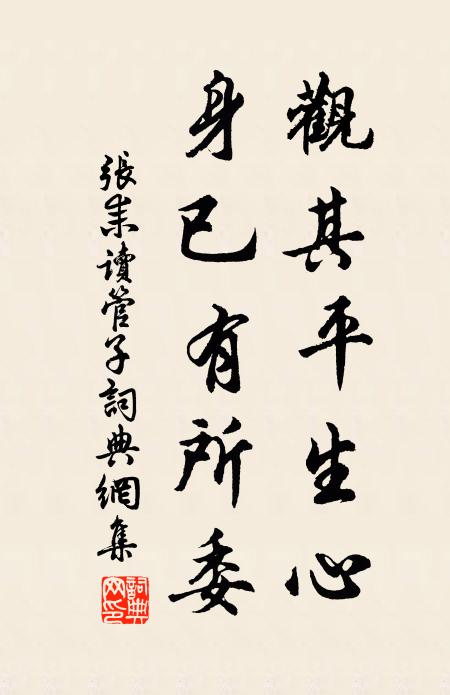 觀其平生心
身已有所委
張耒讀管子詞典網集
詞典网印